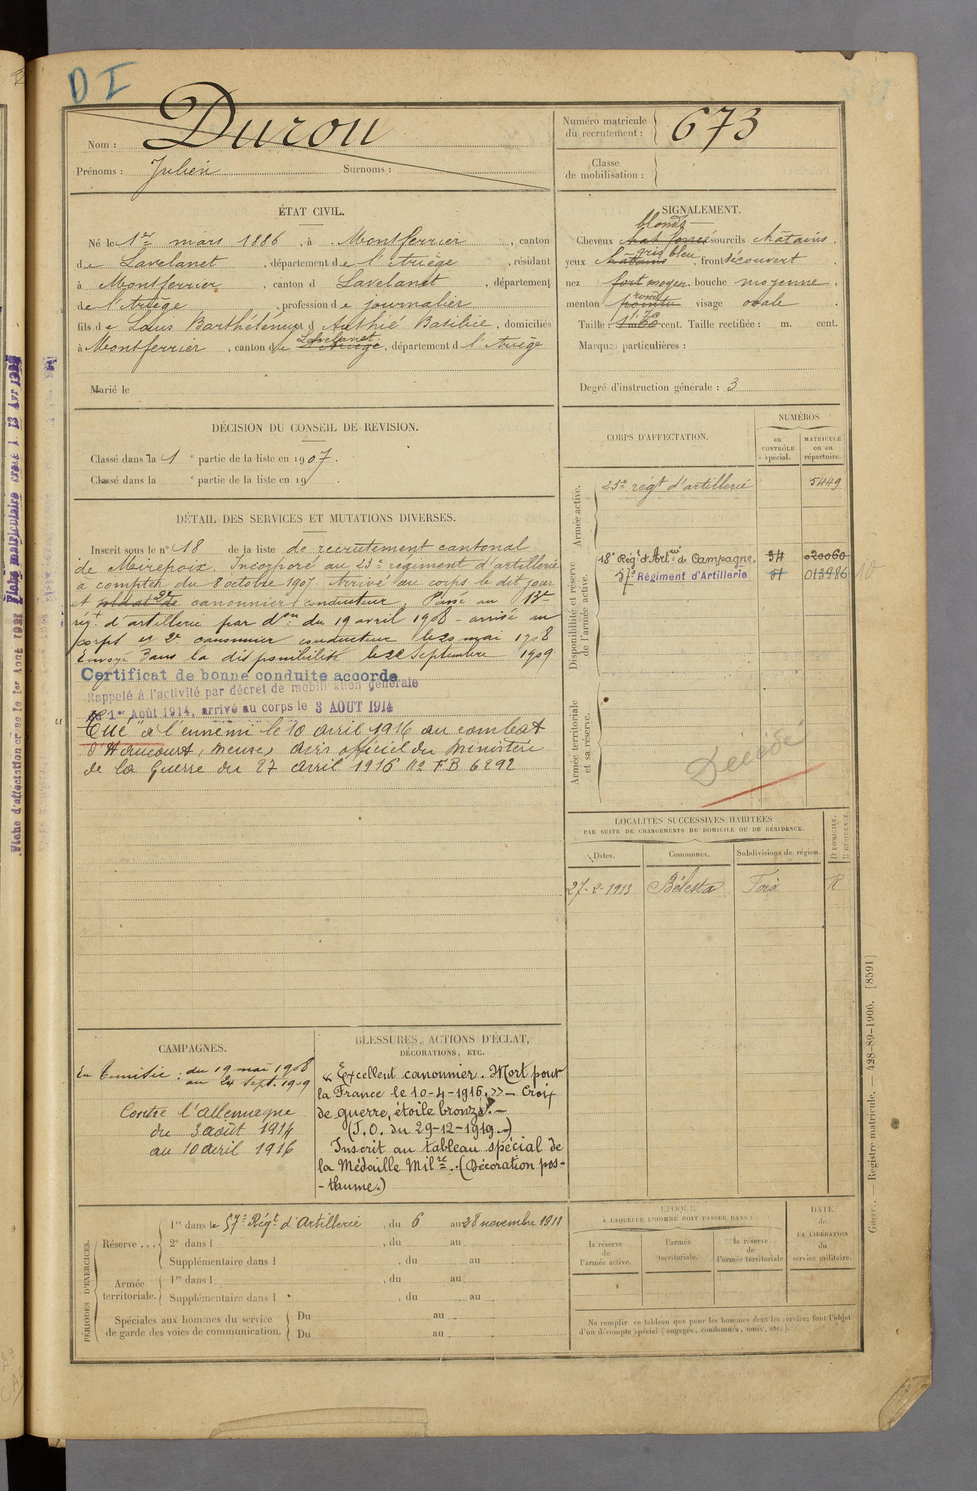 D I
Nom : Durou
Prénoms : Julien Surnoms :
Numéro matricule
du recrutement : 673
Classe
de mobilisation :
ÉTAT CIVIL.
Né le 1er mars 1886, à Montferrier, canton
de Lavelanet, département de l'Ariège, résidant
à Montferrier, canton d Lavelanet, département
de l'Ariège, profession de journalier
fils de Louis Barthélémy et d Authié Basilie, domiciliés
à Montferrier, canton de Lavelanet, département d l'Ariège
Marié le
SIGNALEMENT.
blonds
Cheveux sourcils chatains.
gris bleu
yeux chatains, front découvert
nez fort moyen, bouche moyenne.
rond
menton pointu visage ovale
1.70
Taille : cent. Taille rectifiée : m. cent.
Marques particulières :
Degré d'instruction générale : 3
DÉCISION DU CONSEIL DE REVISION.
Classé dans la 1e partie de la liste en 1907.
Classé dans la e partie de la liste en 19 .
DÉTAIL DES SERVICES ET MUTATIONS DIVERSES.
Inscrit sous le n° 18 de la liste de recrutement cantonal
de Mirepoix. Incorporé au 23e régiment d'artillerie
à compter du 8 octobre 1907. Arrivé au corps le dit jour
et soldat de 2e canonnier conducteur. Passé au 13e
régt d'artillerie par don du 19 avril 1908 - arrivé au
corps et 2e canonnier conducteur le 20 mai 1908
Envoyé dans la disponibilité le 22 septembre 1909
Certificat de bonne conduite accordé
Rappelé à l'activité par décret de mobilisation générale
du 1er Août 1914, arrivé au corps le 3 AOUT 1914
"Tué" à l'ennemi le 10 avril 1916 au combat
d'Haucourt, Meuse, avis officiel du Ministère
de la Guerre du 27 avril 1916 no F.B 6292
CORPS D'AFFECTATION.
NUMÉROS
au
CONTRÔLE
spécial.
MATRICULE
ou au
répertoire.
Armée active.
23e régt d'artillerie 5449
Disponibilité et réserve
de l'armée active.
18e Régt d'Artrie de Campagne 34 020060
57e Régiment d'Artillerie 51 013986
Armée territoriale
et sa réserve.
Décédé
LOCALITÉS SUCCESSIVES HABITÉES
PAR SUITE DE CHANGEMENTS DE DOMICILE OU DE RÉSIDENCE.
Dates. Communes. Subdivisions de région. D DOMICILE. R RÉSIDENCE.
27-2-1913 Bélesta Foix R
CAMPAGNES.
En Tunisie : du 19 mai 1908
au 24 sept. 1909
Contre l'Allemagne
du 3 août 1914
au 10 avril 1916
BLESSURES, ACTIONS D'ÉCLAT,
DÉCORATIONS, ETC.
« Excellent canonnier. Mort pour
la France le 10-4-1916. » — Croix
de guerre, étoile bronze. —
(J.O. du 29-12-1919. —)
Inscrit au tableau spécial de
la Médaille Milre. (Décoration pos-
-thume.)
PÉRIODES D'EXERCICES.
Réserve . . .
1re dans le 57e Régt d'Artillerie, du 6 au 28 novembre 1911
2e dans l , du au
Supplémentaire dans l , du au
Armée
territoriale.
1re dans l , du au
Supplémentaire dans l , du au
Spéciales aux hommes du service
de garde des voies de communication.
Du au
Du au
ÉPOQUE
À LAQUELLE L'HOMME DOIT PASSER DANS :
la réserve
de
l'armée active.
l'armée
territoriale.
la réserve
de
l'armée territoriale
DATE
de
LA LIBÉRATION
du
service militaire.
Ne remplir ce tableau que pour les hommes dont les services font l'objet
d'un décompte spécial (engagés, condamnés, omis, etc.)
Registre matricule. — 428-89-1906. [8591]